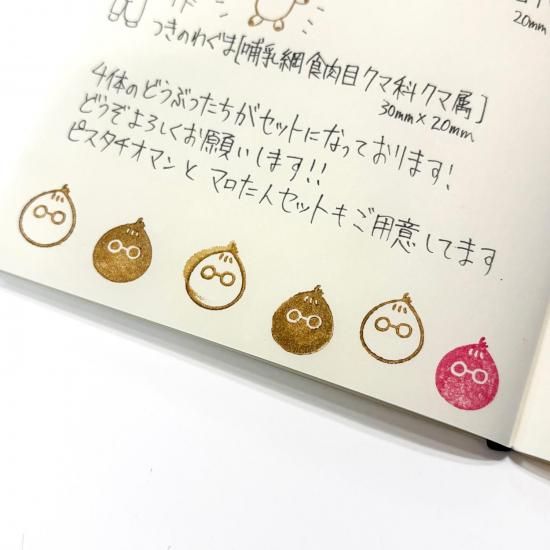 20mm
つきのわぐま[哺乳綱食肉目クマ科クマ属]
30mm×20mm
4体のどうぶつたちがセットになっております!
どうぞよろしくお願いします!!
ピスタチオマンとマロた人セットもご用意してます